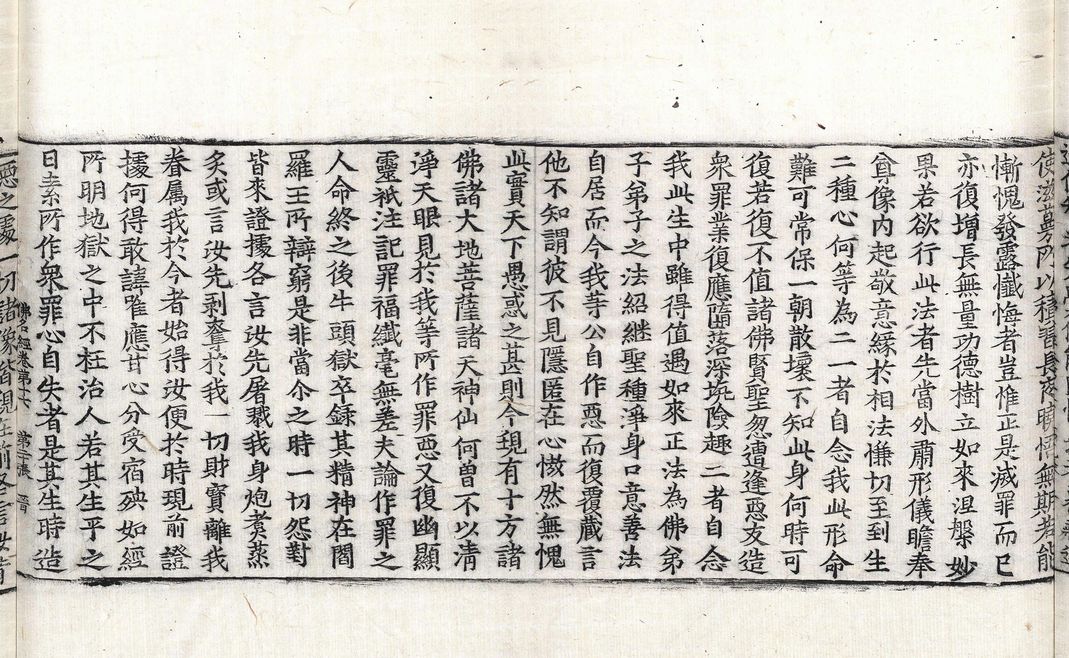 使滋蔓所以積習長夜曉悟無期若能
慚愧發露懺悔者豈惟正是滅罪而已
亦復增長無量功德樹立如來涅槃妙
果若欲行此法者先當外肅形儀瞻奉
尊像內起敬意緣於相法慊切至到生
二種心何等為二一者自念我此形命
難可常保一朝散壞不知此身何時可
復若復不值諸佛賢聖忽遭逢惡友造
衆罪業復應墮落深坑險趣二者自念
我此生中雖得值遇如來正法為佛弟
子弟子之法紹継聖種淨身口意善法
自居而今我等公自作惡而復覆藏言
他不知謂彼不見隱匿在心慠然無愧
此實天下愚惑之甚則今現有十方諸
佛諸大地菩薩諸天神仙何曾不以清
淨天眼見於我等所作罪惡又復幽顯
靈祇注記罪福纖毫無差夫論作罪之
人命終之後牛頭獄卒錄其精神在閻
羅王所辯窮是非當尒之時一切怨對
皆來證據各言汝先屠戮我身炮煮蒸
炙或言汝先剥奪於我一切財寶離我
眷属我於今者始得汝便於時現前證
據何得敢諱唯應甘心分受宿殃如經
所明地獄之中不枉治人若其生平之
日素所作衆罪心自失者是其生時造
佛名經卷第十六 第三張 晋
惡之處一切諸像皆現在前各言汝昔